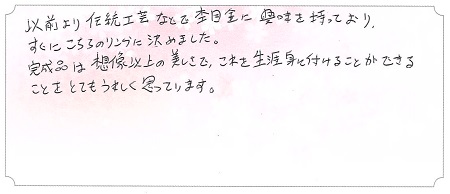 以前より伝統工芸などで杢目金に興味を持っており、
すぐにこちらのリングに決めました。
完成品は想像以上の美しさで、これを生涯身に付けることができる
ことをとてもうれしく思っています。